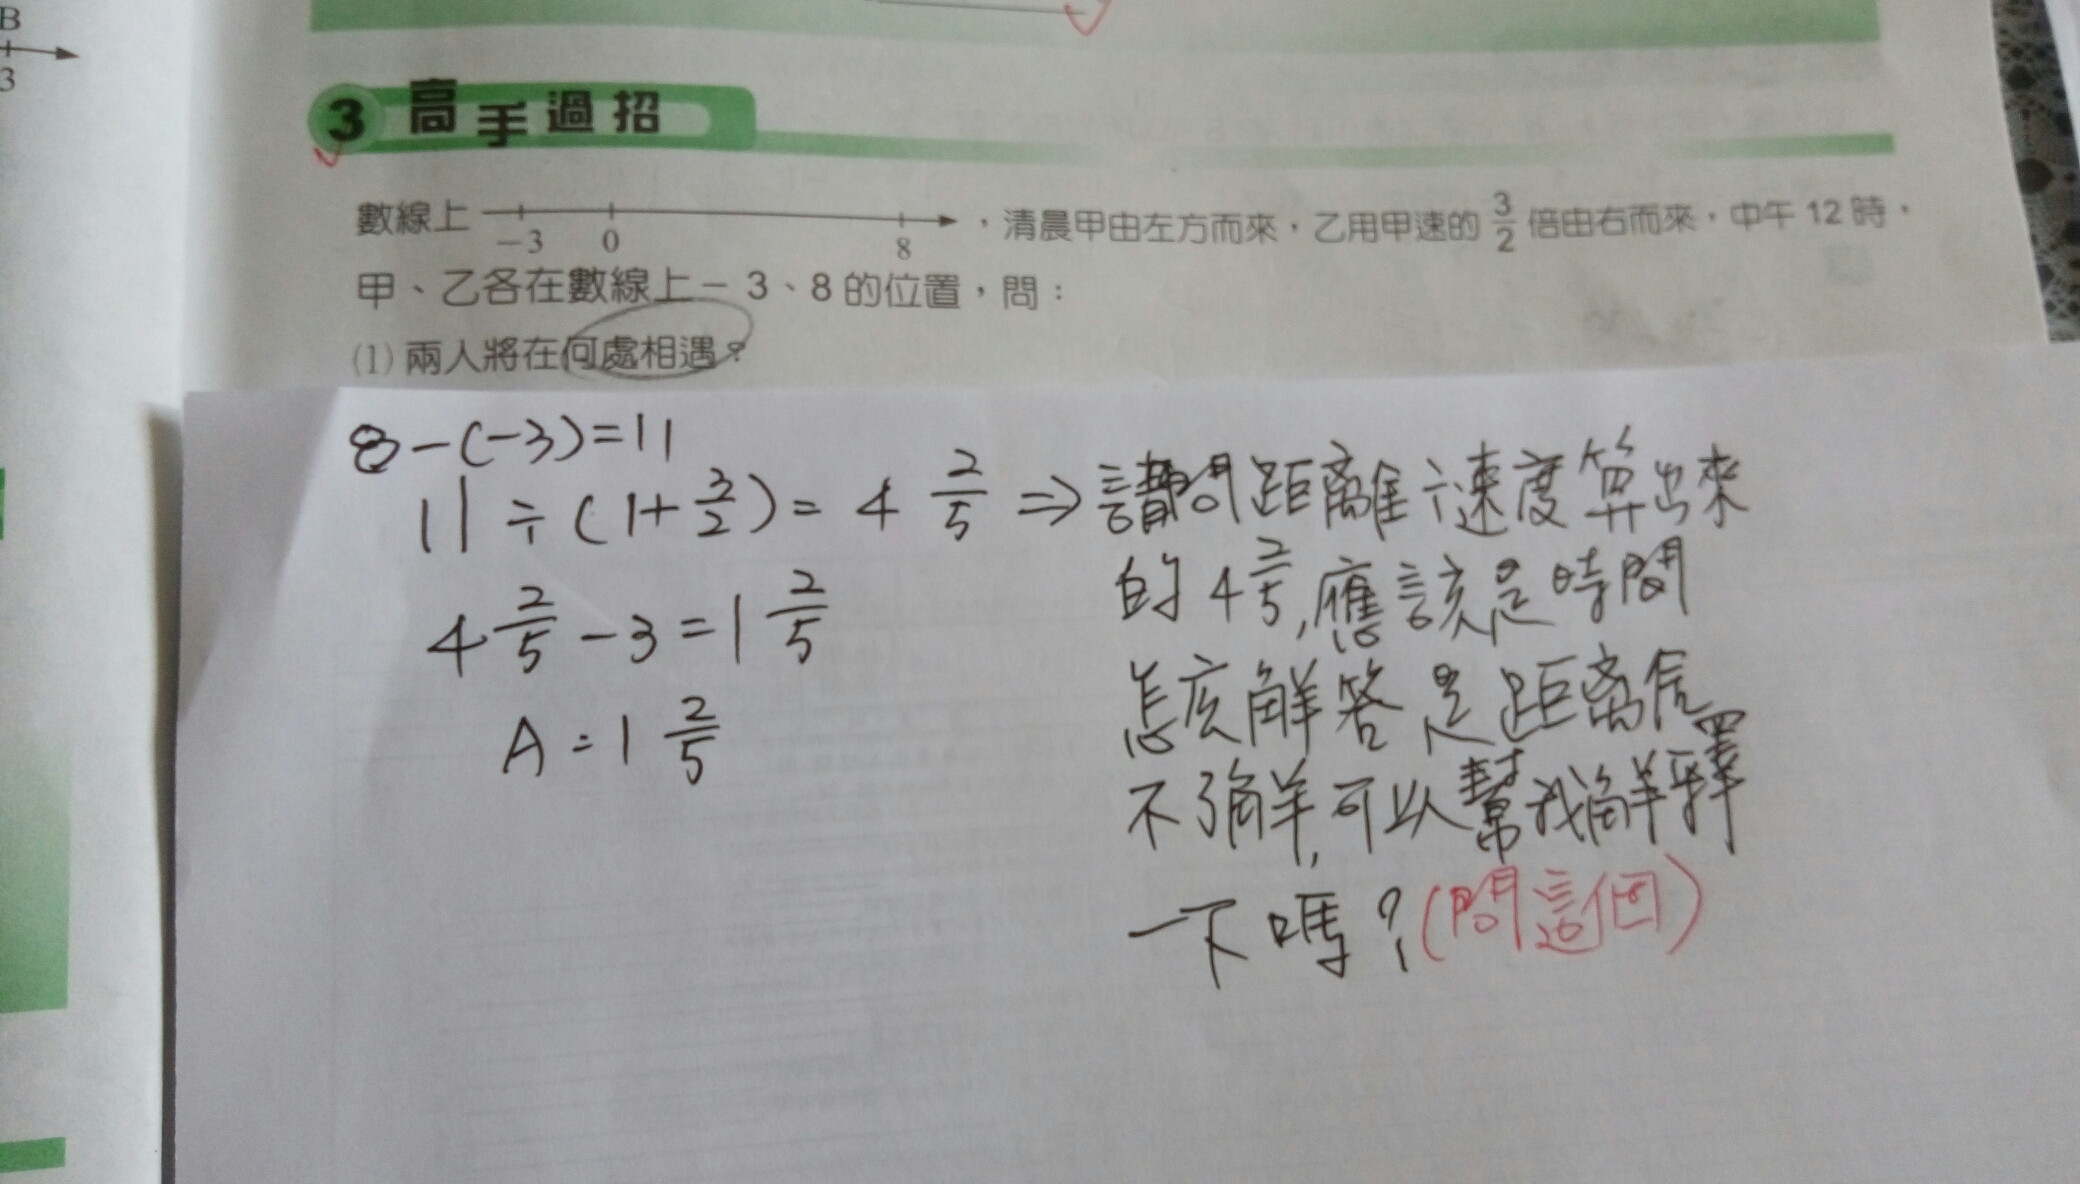 B
3
3 高手過招
數線上 -3 0 8 ,清晨甲由左方而來,乙用甲速的 3/2 倍由右而來,中午 12 時,
甲、乙各在數線上-3、8的位置,問:
(1) 兩人將在何處相遇?
8-(-3)=11
11÷(1+3/2)=4 2/5 ⇒ 請問距離÷速度算出來
的4 2/5,應該是時間
4 2/5-3=1 2/5
怎麼解答是距離
A=1 2/5
不了解,可以幫我解釋
一下嗎?(問這個)